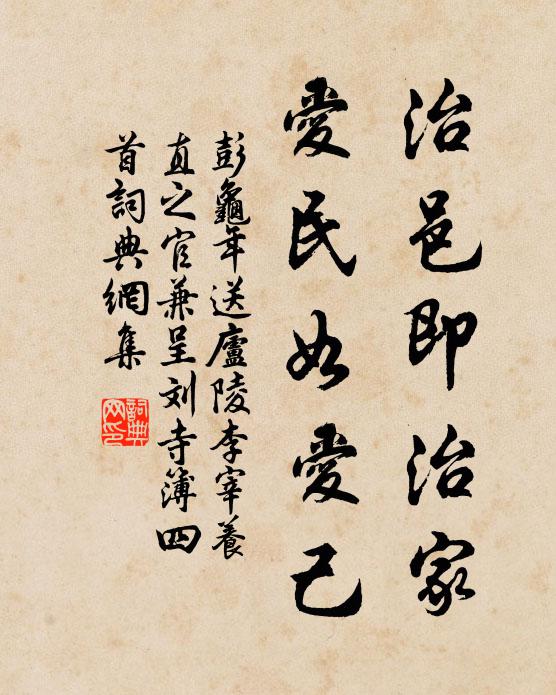 治邑即治家
愛民如愛己
彭龜年送廬陵李宰養
直之官兼呈刘寺簿四
首詞典網集
詞典
网印